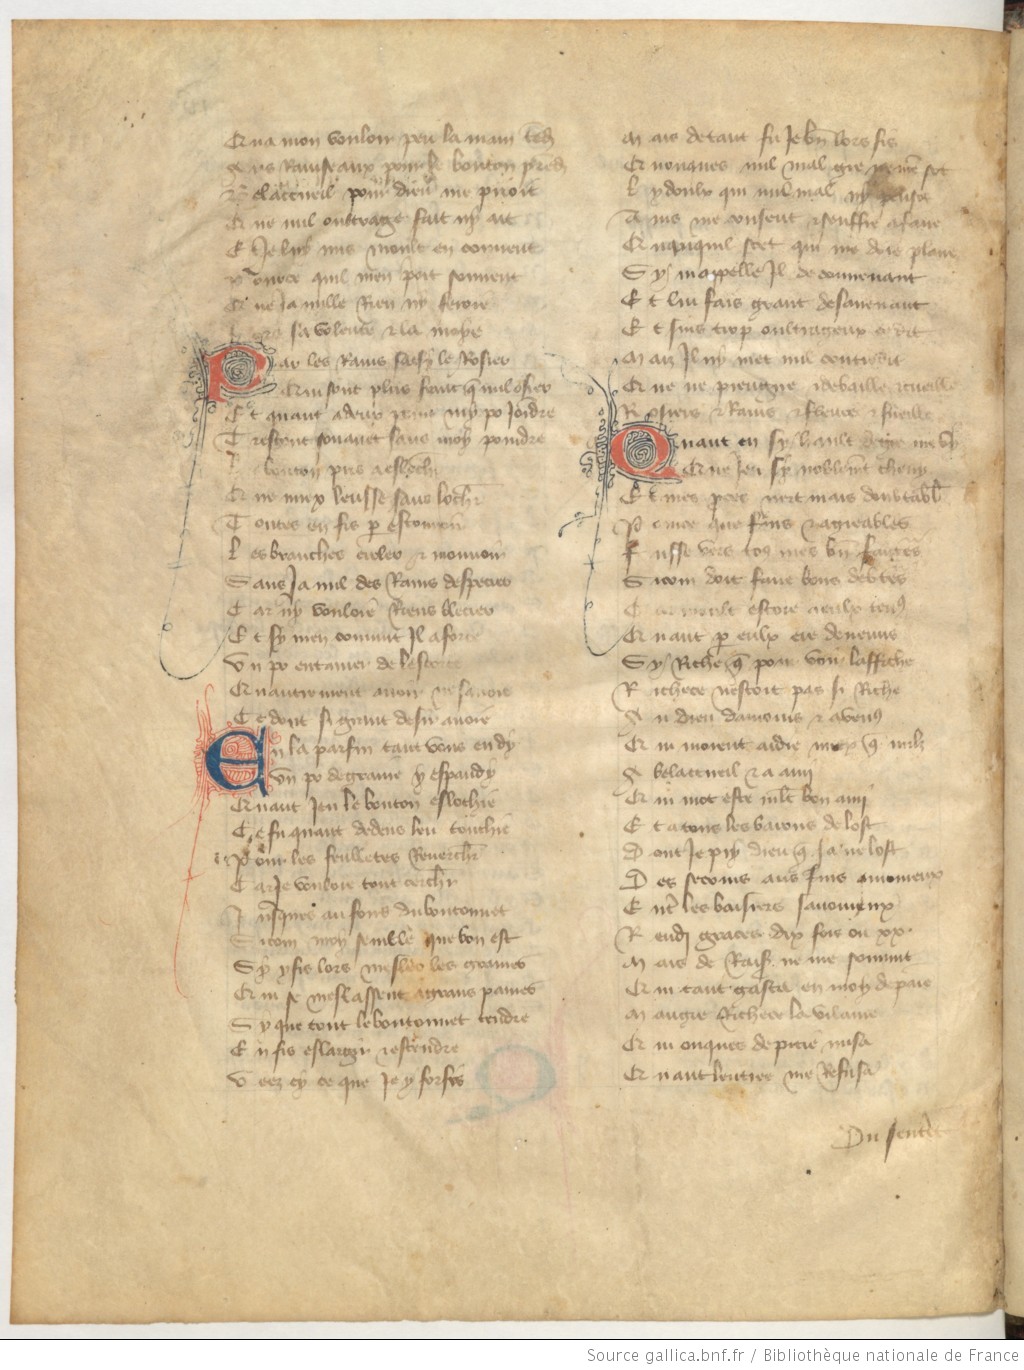 Et va mon vouloir peu la main tend
Vers Rainseaux pour le bouton prend
Belaccueil pour dieu me prioit
Que nul oultrage fait ny ait
Et Je luy mis moult en convent
Pource quil men prioit souvent
Que Ja nulle Rien ny feroie
sa volente & la moye
Par les Rains saisy le Rosier
Qui sont plus franc que nul osier
Et quant a deux mains my po Joindre
Trestout souauet sans moy poindre
bouton pris a eslochier
Que mieux leusse sans lochier
Toutes en fis par estouvoir
Les branches croler & mouvoir
Sans Ja nul des Rains despecier
Car ny vouloie Riens blecier
Et sy men convint Il a force
Un po entamer de lescorce
Quautrement avoir ne savoie
Ce dont si grant desir avoie
En la parfin tant vous en dy
Un po de graine y espandy
Quant Jeu le bouton eslochie
Ce fu quant dedens leu touchie
Pour les feulletes Reverchier
Car Je vouloie tout cerchier
Jusques au fons du boutonnet
Sicom moy semble que bon est
Sy y fis lors mesler les graines
Qui se meslassent a grans paines
Sy que tout le boutonnet tendre
En fis eslargir & estendre
Veez cy ce que Je y forfis
Mais de tant fu Je bien lors fis
Quonques nul mal gre ne men sot
Ly doulx qui nul mal ny pensot
Ains me consent & seuffre a faire
Quanquil scet qui me doie plaire
Sy mappelle Il de convenant
Et lui fais grant desavenant
Et suis trop oultrageux ce dit
Mais Il ny met nul contredit
Que ne preigne & debaille & cueille
Rosiers & Rains & fleurs & fueille
Quant en sy hault degre me vy
Que Jeu sy noblement chevy
Et mes proces nert mais doubtable
Pour ce que fins & agreables
Fusse vers tous mes bienfaiteurs
Sicom doit faire bons debteurs
Car moult estoie a eulx tenus
Quant par eulx ere devenus
Sy Riche que pour voir laffiche
Richece nestoit pas si Riche
Au dieu damours & a venus
Qui mavoient aidie mieux que nulz
A belaccueil & a ami
Qui mot este moult bon ami
Et a tous les barons de lost
Dont Je pry dieu que Ja ne lost
Des secours aus fins amoureux
Entre les baisiers savoureux
Rendi graces dix fois ou xx.
Mais de Raison ne me souvint
Qui tant gasta en moy de paine
Maugre Richece la vilaine
Qui onques de pitie nusa
Quant lentree me Refusa
Du sentier